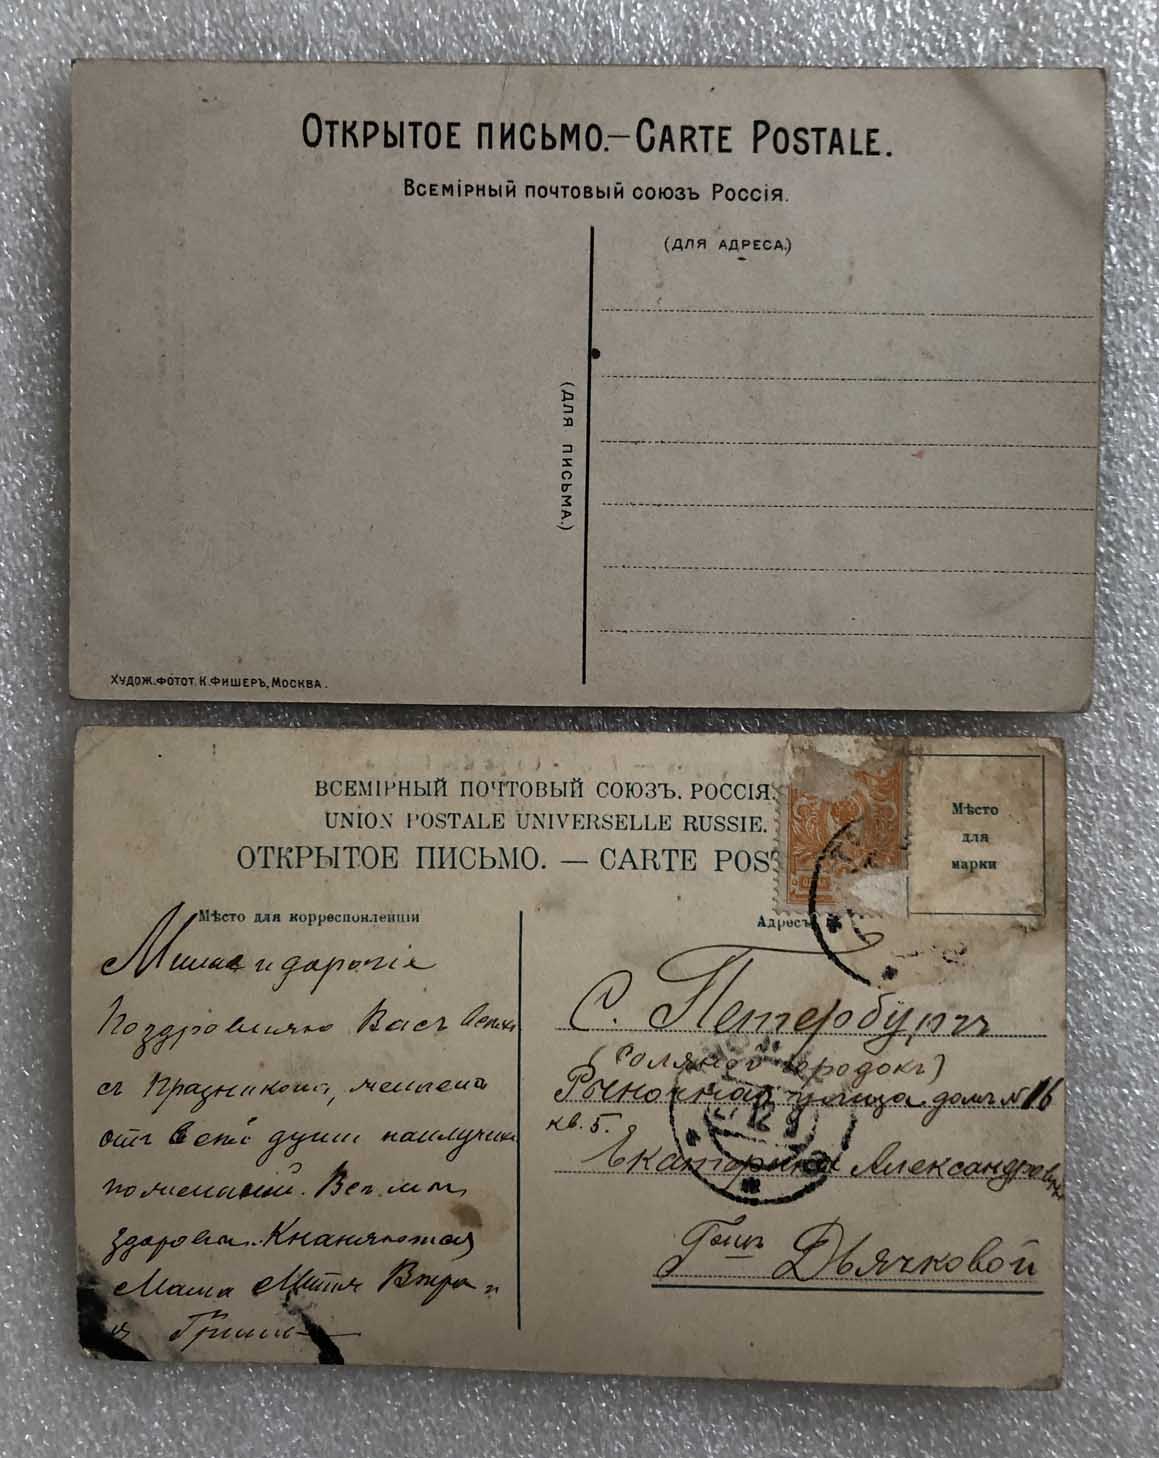 Открытое письмо.—Carte Postale.
Всемірный почтовый союзъ Россія.
(для адреса.)
(для письма.)
Худож.фотот. К.Фишеръ, Москва.
ВСЕМІРНЫЙ ПОЧТОВЫЙ СОЮЗЪ. РОССІЯ.
UNION POSTALE UNIVERSELLE RUSSIE.
ОТКРЫТОЕ ПИСЬМО. — CARTE POS
Мѣсто
для
марки
Мѣсто для корреспонденціи
Милая и дорогія
Поздравляю Васъ
съ Празникомъ, желаемъ
отъ всей души наилучши
пожеланій. Все мы
здоровы. Кланяются
Мама Митя и
я Гриша
Адресъ
С. Петербургъ
(Соляной городокъ)
Рыночная улица домъ № 16
кв. 5.
Екатерина Александровн
Гощъ Дьячковой